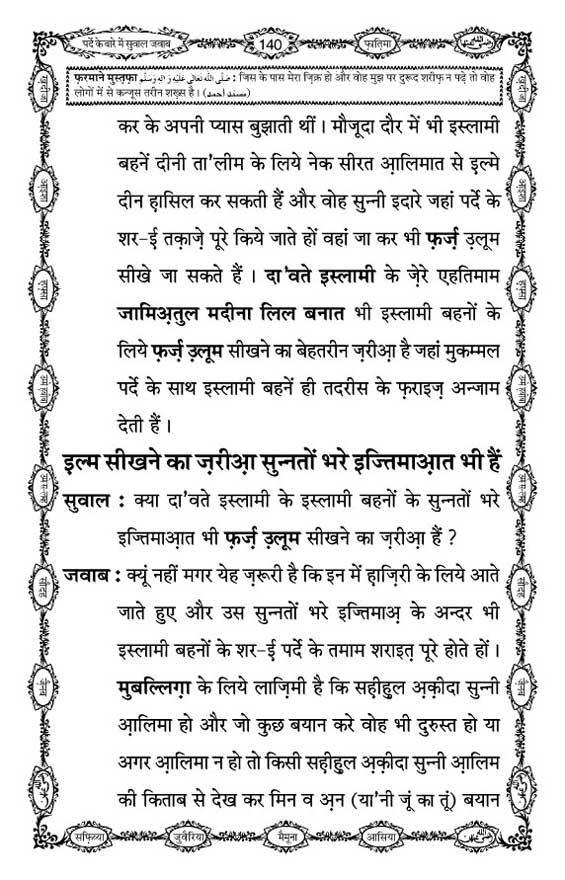 पर्दे के बारे में सुवाल जवाब
140
फ़ातिमा
फ़रमाने मुस्तफ़ा صَلَّى اللّٰهُ تَعَالٰى عَلَيْهِ وَاٰلِهٖ وَسَلَّم : जिस के पास मेरा ज़िक्र हो और वोह मुझ पर दुरूद शरीफ़ न पढ़े तो वोह
लोगों में से कन्जूस तरीन शख़्स है । (مسند احمد)
कर के अपनी प्यास बुझाती थीं । मौजूदा दौर में भी इस्लामी
बहनें दीनी ता'लीम के लिये नेक सीरत आ़लिमात से इल्मे
दीन हासिल कर सकती हैं और वोह सुन्नी इदारे जहां पर्दे के
शर-ई तक़ाज़े पूरे किये जाते हों वहां जा कर भी फ़र्ज़ उ़लूम
सीखे जा सकते हैं । दा'वते इस्लामी के ज़ेरे एहतिमाम
जामिअ़तुल मदीना लिल बनात भी इस्लामी बहनों के
लिये फ़र्ज़ उ़लूम सीखने का बेहतरीन ज़रीआ़ है जहां मुकम्मल
पर्दे के साथ इस्लामी बहनें ही तदरीस के फ़राइज़ अन्जाम
देती हैं ।
इल्म सीखने का ज़रीआ़ सुन्नतों भरे इज्तिमाआ़त भी हैं
सुवाल : क्या दा'वते इस्लामी के इस्लामी बहनों के सुन्नतों भरे
इज्तिमाआ़त भी फ़र्ज़ उ़लूम सीखने का ज़रीआ़ हैं ?
जवाब : क्यूं नहीं मगर येह ज़रूरी है कि इन में हाज़िरी के लिये आते
जाते हुए और उस सुन्नतों भरे इज्तिमाअ़ के अन्दर भी
इस्लामी बहनों के शर-ई पर्दे के तमाम शराइत़ पूरे होते हों ।
मुबल्लिग़ा के लिये लाज़िमी है कि सह़ीह़ुल अ़क़ीदा सुन्नी
आ़लिमा हो और जो कुछ बयान करे वोह भी दुरुस्त हो या
अगर आ़लिमा न हो तो किसी सह़ीह़ुल अ़क़ीदा सुन्नी आ़लिम
की किताब से देख कर मिन व अ़न (या'नी जूं का तूं) बयान
सफ़िय्या
जुवैरिया
मैमूना
आसिया